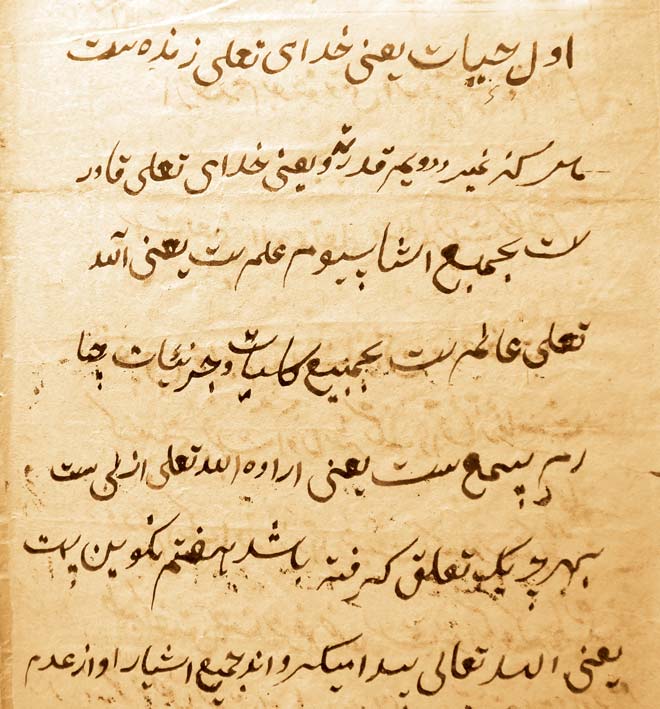 اول حیات یعنی خدای تعلی زنده ست
هرکز نمیرد دویم قدرة و یعنی خدای تعلی قادر
ست بجمیع اشیا سیوم علم ست یعنی الله
تعلی عالم ست بجمیع کلیات و جزئیات چها
رم سمع ست یعنی اراده الله تعلی ازلی ست
بهر چیک تعلق کرفته باشد هفتم تکوین ست
یعنی الله تعالی پیدا میکرداند جمیع اشیا را و از عدم